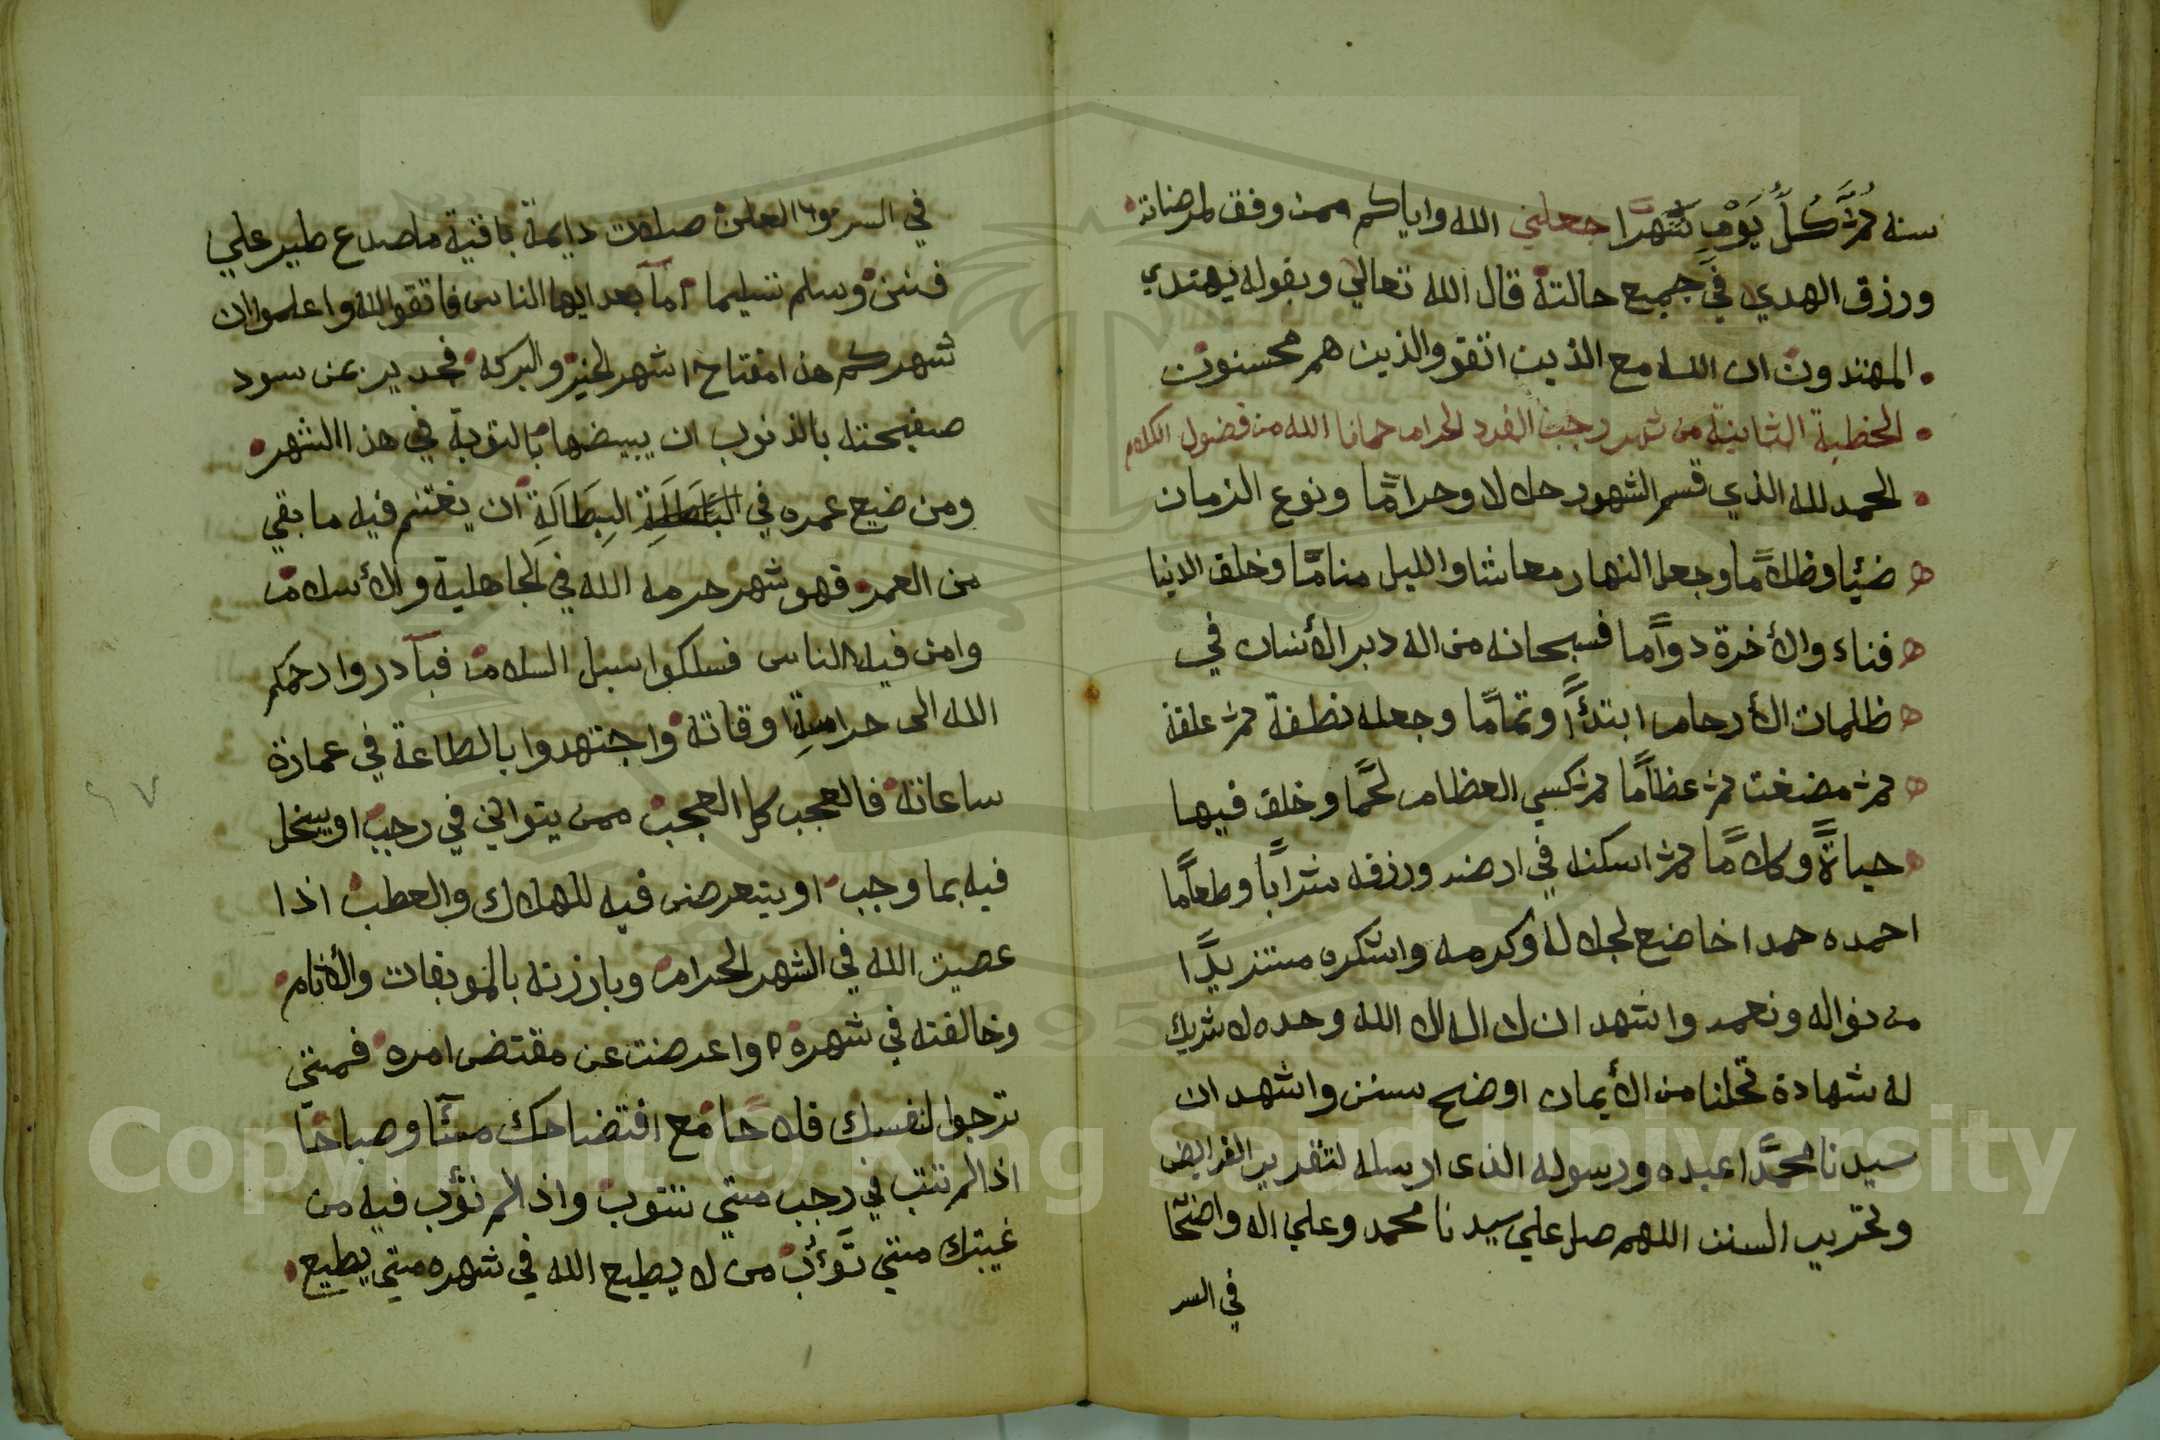 سنة ثمَّ كُلُّ يَوْمٍ شَهْرًا جعلني الله واياكم ممن وفق لمرضاته
ورزق الهدي في جميع حالته قال الله تعالي وبقوله يهتدي
المهتدون ان الله مع الذين اتقو والذين هم محسنون
الخطبة الثانية من شهر رجب الفرد الحرام حمانا الله من فضول الكلام
الحمد لله الذي قسم الشهور حلالا وحرامًا ونوع الزمان
ضيئا وظلامًا وجعل النهار معاشا والليل منامًا وخلق الدنيا
فناء والأخرة دوامًا فسبحانه من اله دبر الأنسان في
ظلمات الأرحام ابتدئًا وتمامًا وجعله نطفة ثم علقة
ثم مضغت ثم عظامًا ثم كسي العظام لحمًا وخلق فيها
حياةً وكلامًا ثم اسكنه في ارضه ورزقه شرابًا وطعامًا
احمده حمدا خاضع لجلاله وكرمه واشكره مستزيدًا
من نواله ونعمه واشهد ان لا اله الا الله وحده لا شريك
له شهادة تحلنا من الأيمان اوضح سنن واشهد ان
سيدنا محمدًا عبده ورسوله الذى ارسله لتقرير الفرايض
وتحرير السنن اللهم صل علي سيدنا محمد وعلي اله واضحًا
في السر
في السر والعلن صلاة دايمة باقية ما صدع طير علي
فنن وسلم تسليما اما بعد ايها الناس فاتقو الله واعلموا ان
شهركم هذا مفتاح اشهر الخير والبركة فجدير بمن سود
صفيحته بالذنوب ان يبيضها بالتوبة في هذا الشهر
ومن ضيع عمره في البِطَالَةِ ان يغتنم فيه ما بقي
من العمر فهو شهر حرمه الله في الجاهلية والأسلام
وامن فيه الناس فسلكوا سبل السلام فبادروا رحمكم
الله الى حراسة اوقاته واجتهدوا بالطاعة في عمارة
ساعاته فالعجب كل العجب ممن يتواني في رجب او يبخل
فيه بما وجب او يتعرض فيه للهلاك والعطب اذا
عصيت الله في الشهر الحرام وبارزته بالموبقات والأثام
وخالفته في شهره واعرضت عن مقتضى امره فمتي
ترجوا لنفسك فلاحا مع افتضاحك مسئًا وصباحًا
اذا لم تتب في رجب متي تتوب واذا لم تؤب فيه من
غيبتك متي تؤب من لا يطيع الله في شهره متي يطيع
٤٧
Copyright © King Saud University